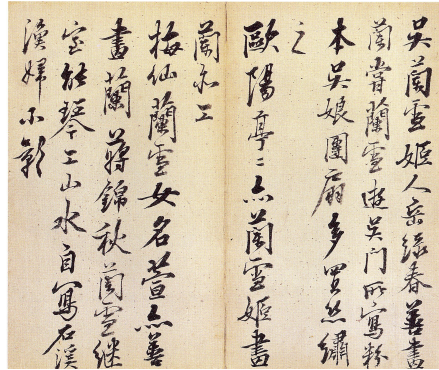 吳蘭雪姬人岳綠春善畫
蘭當蘭雪遊吳門所寫粉
本吳娘團扇多買絲繡
之
歐陽亭〻亦蘭雪姬畫
蘭亦工
梅仙蘭雪女名萱亦善
畫蘭蔣錦秋蘭雪継
室能琴工山水自寫石溪
漁婦小影